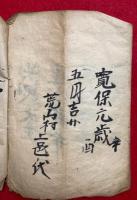 寛保元歳
辛
酉
五月吉日
荒山村